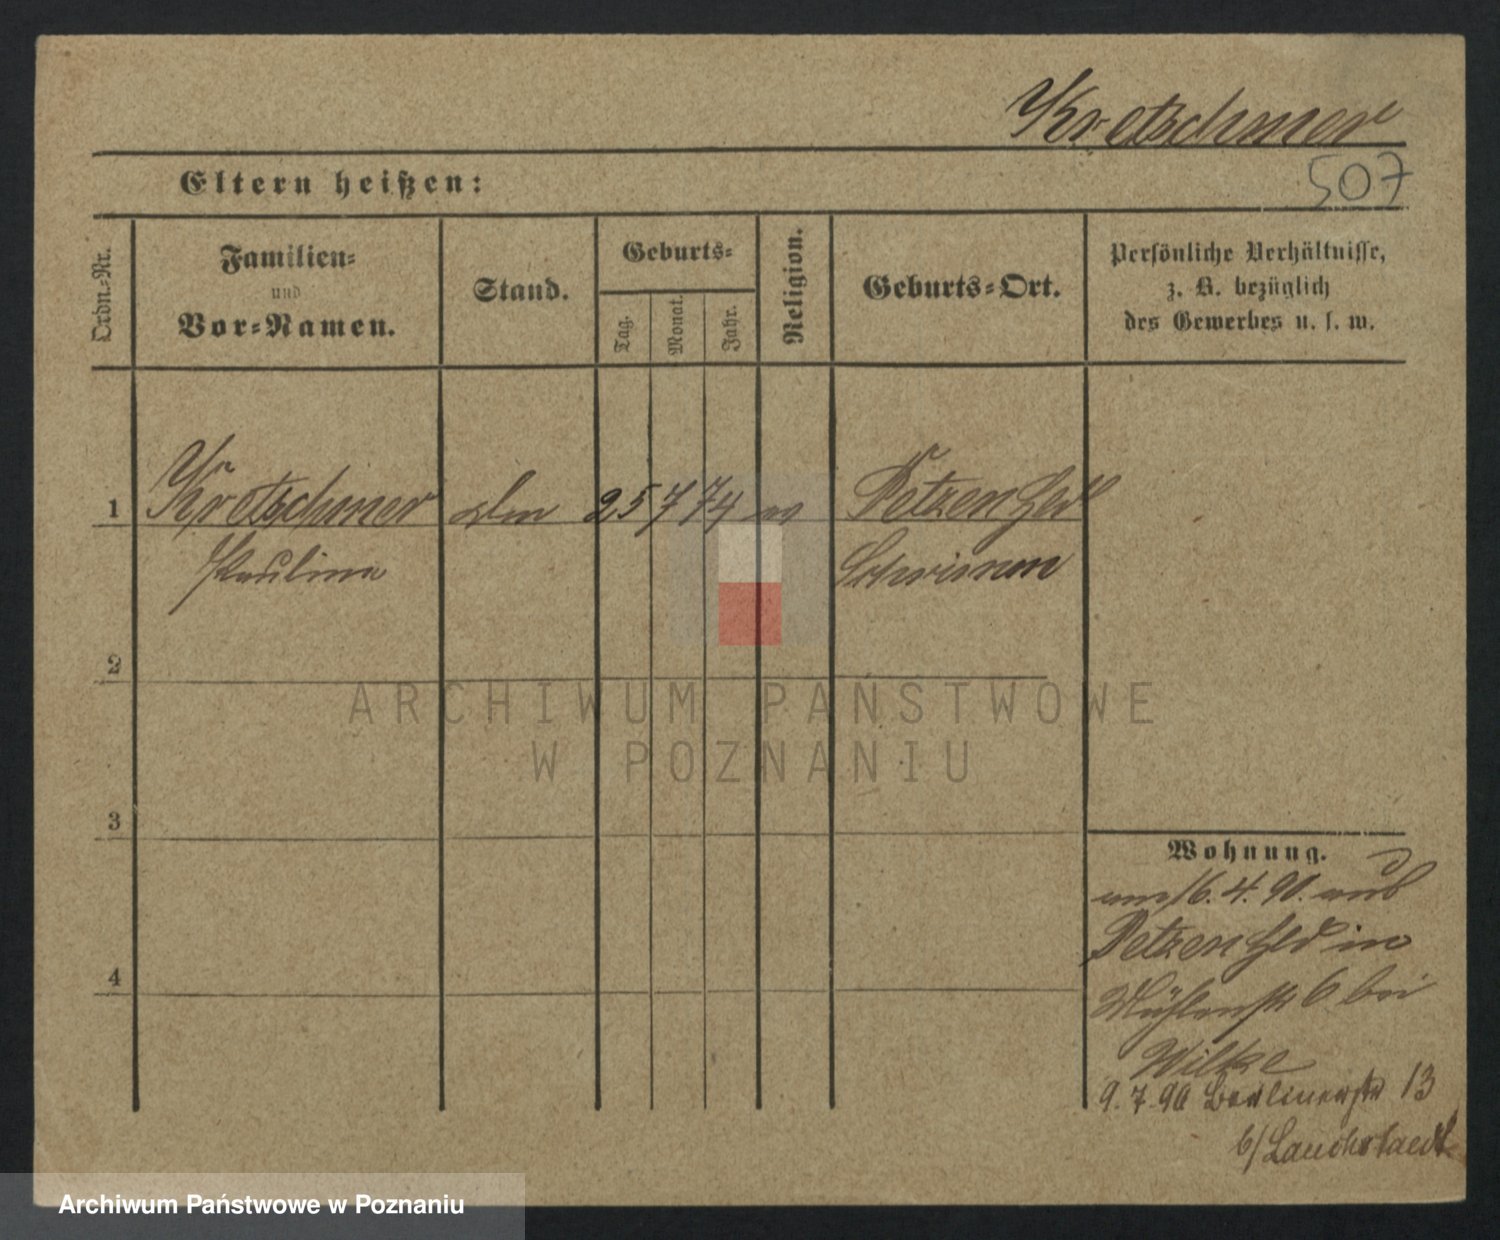 Kretschmer
507
Eltern heißen:
Ordn.-Nr.
Familien-
und
Vor-Namen.
Stand.
Geburts-
Tag.
Monat.
Jahr.
Religion.
Geburts-Ort.
Persönliche Verhältnisse,
z. B. bezüglich
des Gewerbes u. s. w.
1 Kretschmer 25 7 74
Pauline
2
3
4
ARCHIWUM PAŃSTWOWE
W POZNANIU
Wohnung.
16.4.90. aus
in
Mühlenstr 6 bei
Wilke
9.7.90 Berlinerstr 13
b/ Lauchstaedt
Archiwum Państwowe w Poznaniu